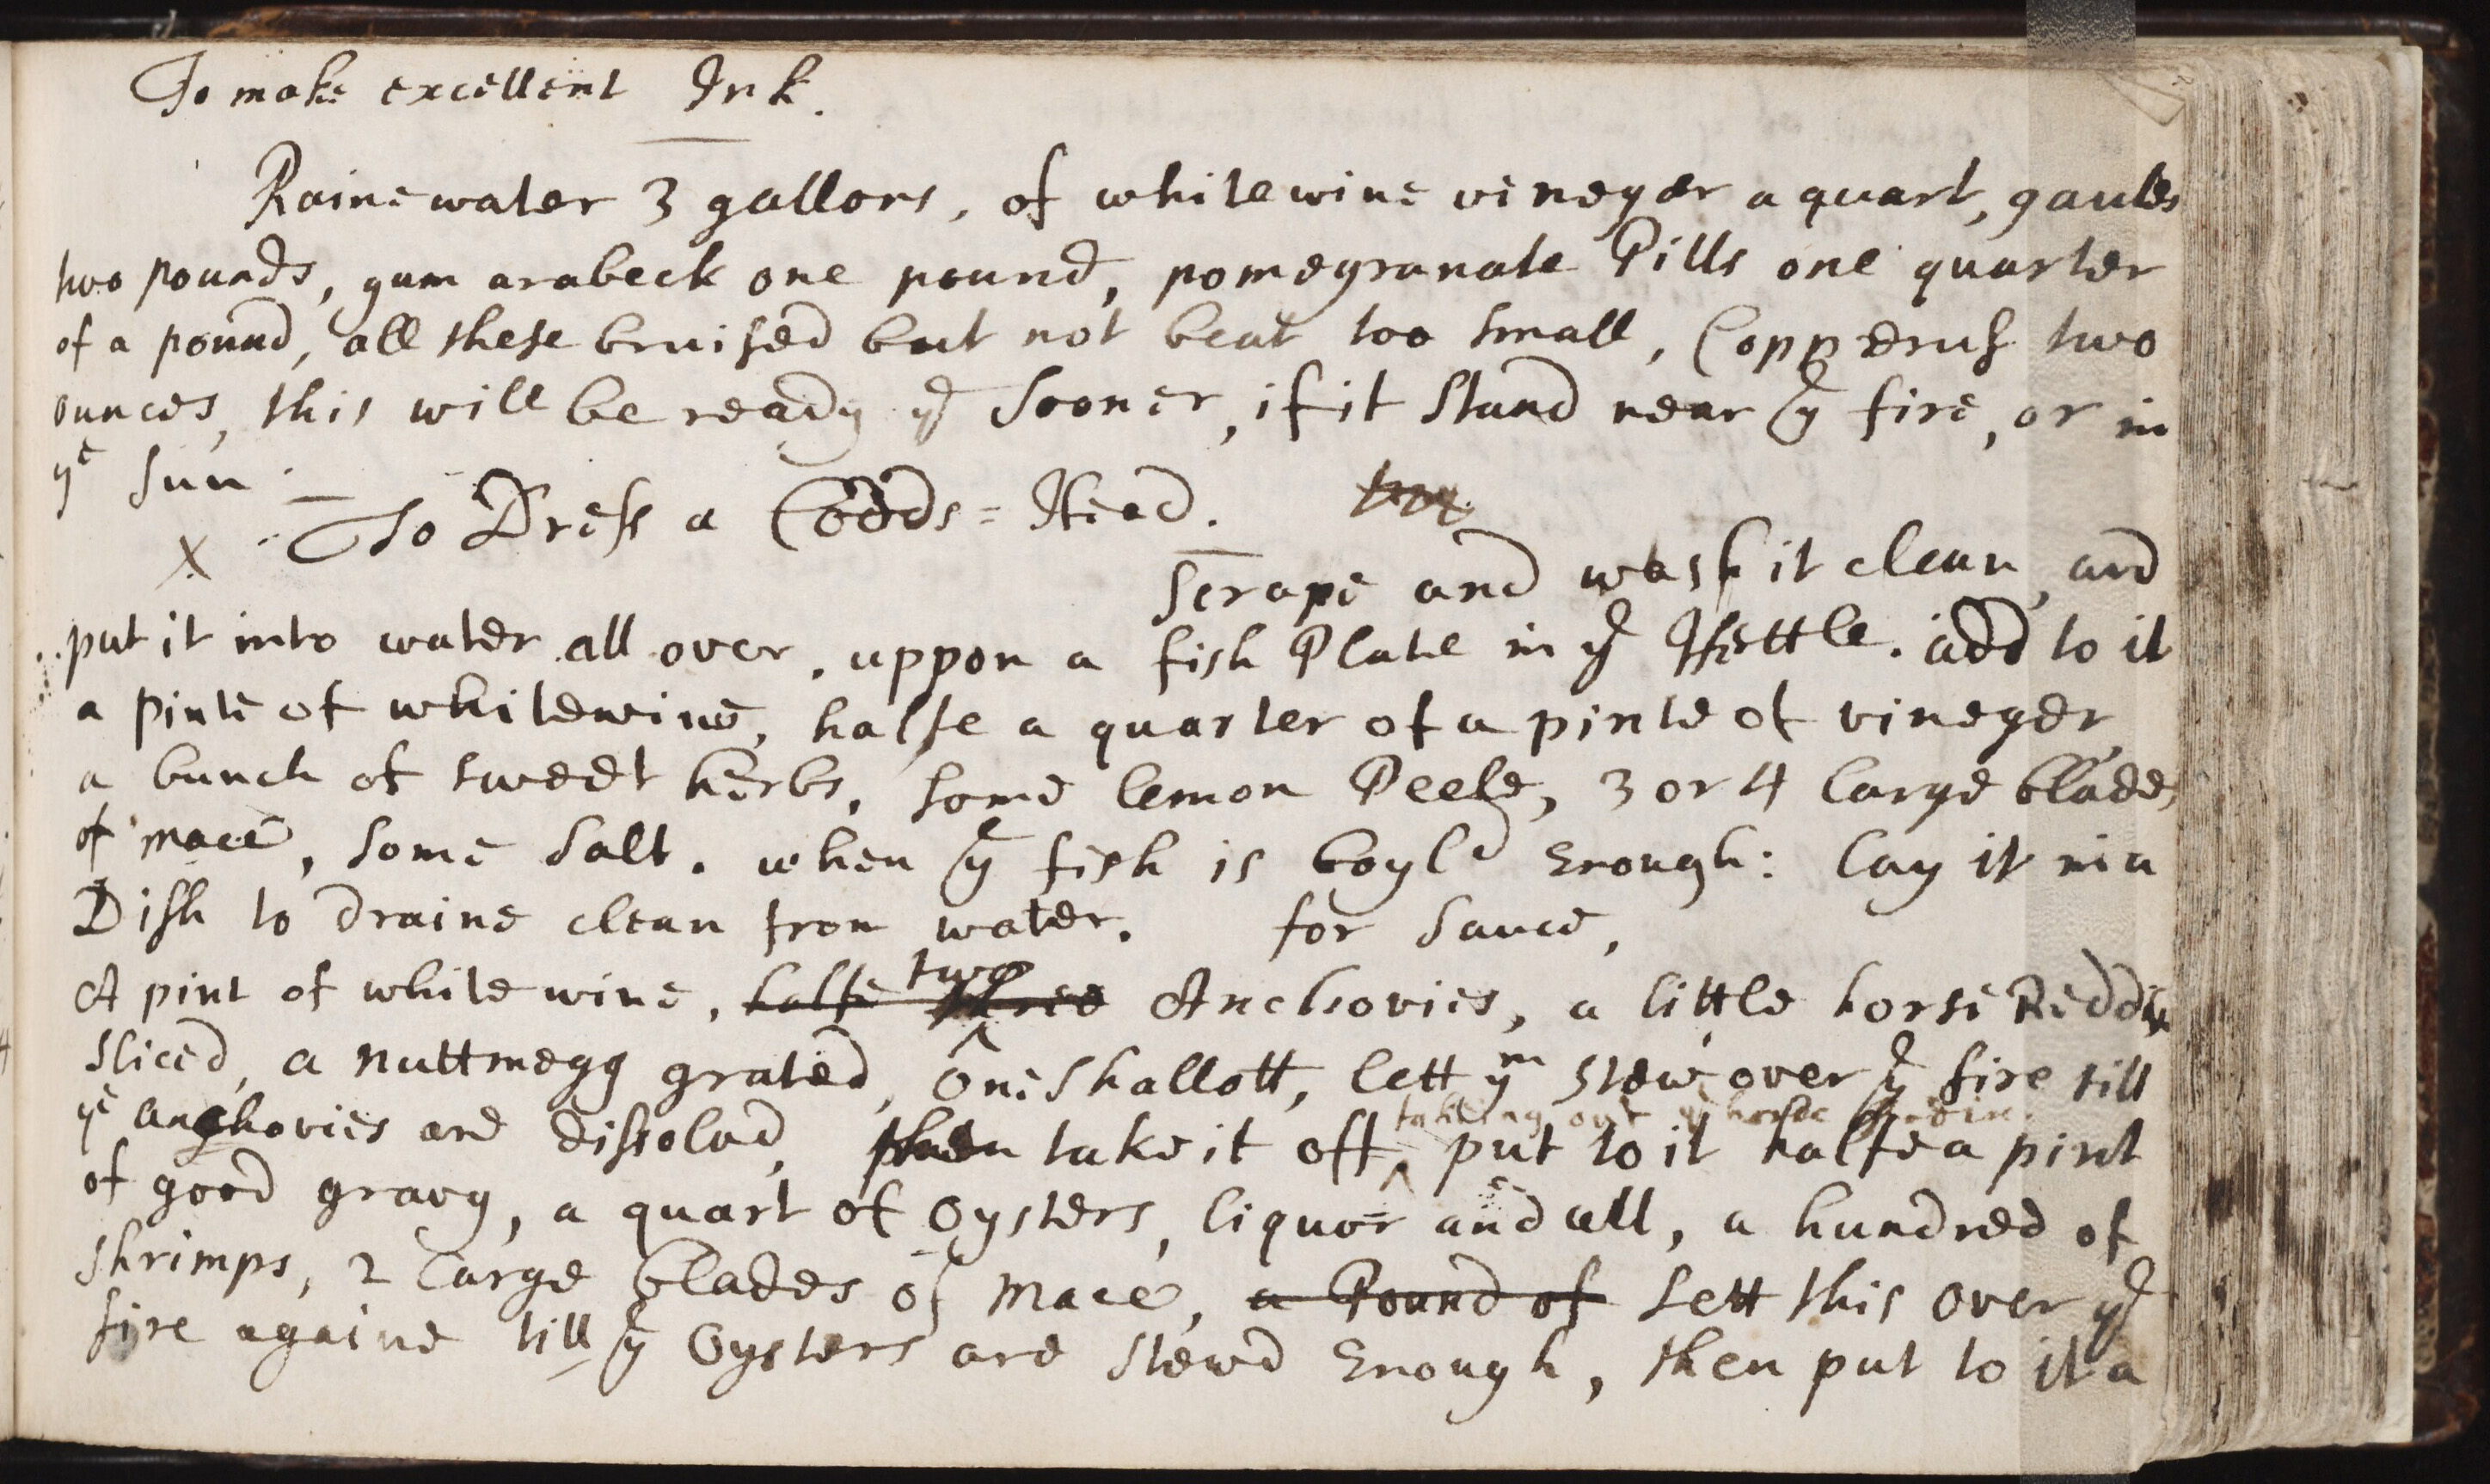 To make excellent Ink.
Rainewater 3 gallons, of whitewine vineger a quart, gaules
two pounds, gum arabeck one pound, pomegranate Pills one quarter
of a pound, all these bruised but not beat too small, Copperus two
ounces, this will be ready ye sooner, if it stand near ye fire, or in
ye sun
x To Dress a Codds=Head.
Scrape and wash it clean, and
put it into water all over, uppon a fish Plate in ye Kettle. add to it
a pinte of whitewine, halfe a quarter of a pinte of vineger,
a bunch of sweet herbs, some lemon Peele, 3 or 4 large blades
of mace, some salt. when ye fish is boyld Enough: lay it in a
Dish to draine clean from water. for sauce,
A pint of white wine, halfe three two Anchovies, a little horse Reddix
sliced, a nuttmegg grated, one shallott, lett ym stew over ye fire till
ye anchovies are dissolud, then take it off, taking out ye horse put to it halfe a pint
of good gravy, a quart of oysters, liquor and all, a hundred of
shrimps, 2 large blades of mace, a Pound of sett this over ye
fire againe till ye Oysters are stewd Enough, then put to it a